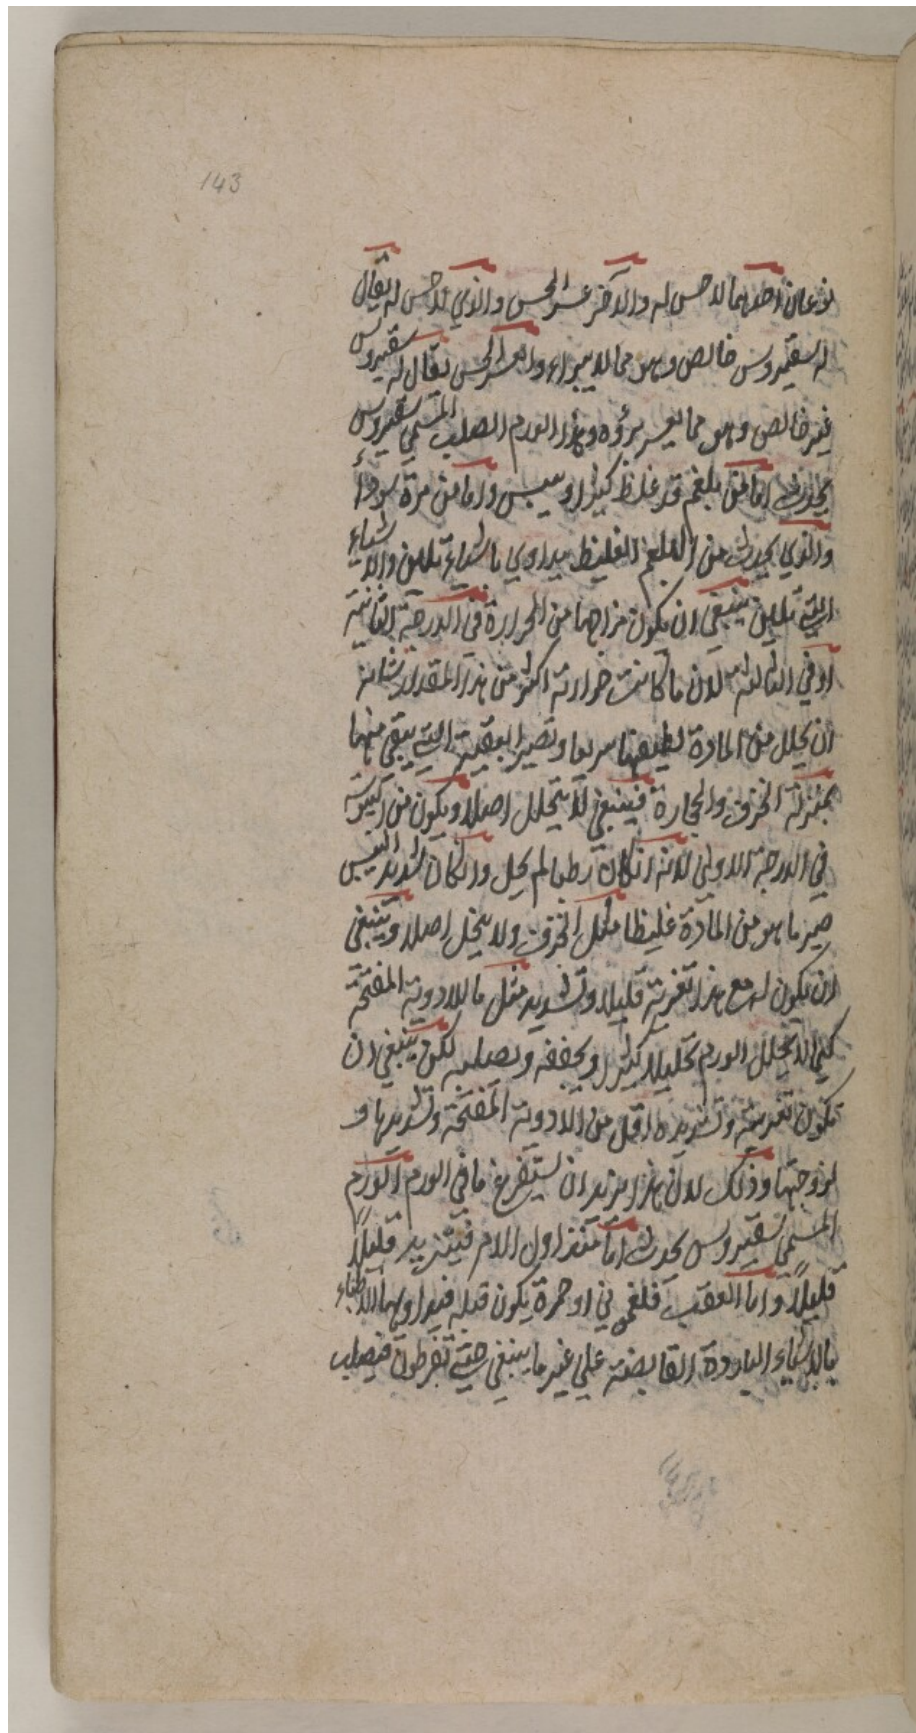 143
نوعان احدهما لا حس له والآخر عسر الحس والذي لا حس له يقال
له سقيروس خالص وهو مما لا يبرأ والعسر الحس يقال له سقيروس
غير خالص وهو مما يعسر برؤه وهذا الورم الصلب المسمى سقيروس
يحدث اما من بلغم قد غلظ كثيرا ويبس واما من مرة سوداء
والذي يحدث من البلغم الغليظ يداوي باشياء تلين والاشياء
التي تلين ينبغي ان يكون مزاجها من الحرارة في الدرجة الثانية
او في الثالثة لان ما كانت حرارته اكثر من هذا المقدار شانه
ان يحلل من المادة لطيفها سريعا وتصير البقية التي يبقى منها
بمنزلة الخزف والحجارة فينبغي لا يتحلل اصلا ويكون من اليبوسة
في الدرجة الاولى لانه ان كان رطبا لم يحل وان كان شديد اليبس
صير ما هو من المادة غليظا مثل الخزف ولا ينحل اصلا وينبغي
ان يكون له مع هذا تغرية قليلا وتشديد مثل ما للادوية المفتحة
كيما لا يحلل الورم تحليلا كثيرا ويجففه ويصلبه لكن ينبغي ان
تكون تغريته وتشديده اقل من الادوية المفتحة وتشديدها و
لزوجتها وذلك لان هذا يريد ان يستفرغ ما في الورم الورم
المسمى سقيروس يحدث اما منذ اول الامر فيتزيد قليلاً
قليلاً واما العقب فلغموني او حمرة يكون قبله فيداويها الاطباء
بالاشياء الباردة القابضة على غير ما ينبغي حتى تفرطون فيصلب